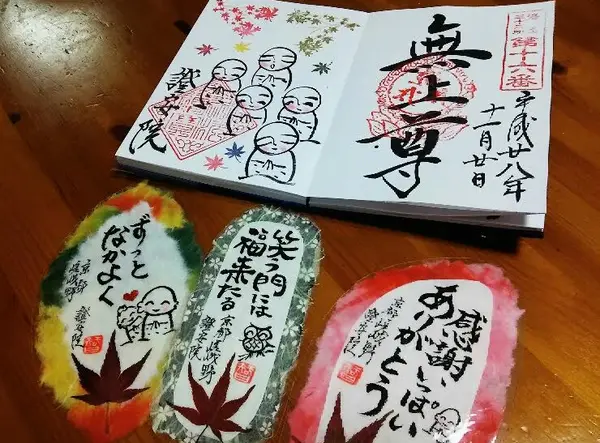 證安院
無上尊
第十六番
平成廿八年
十一月廿日
ずっと
なかよく
京都
嵯峨野
證安院
笑う門には
福来たる
京都嵯峨野
證安院
感謝、いっぱい
ありがとう
京都嵯峨野
證安院